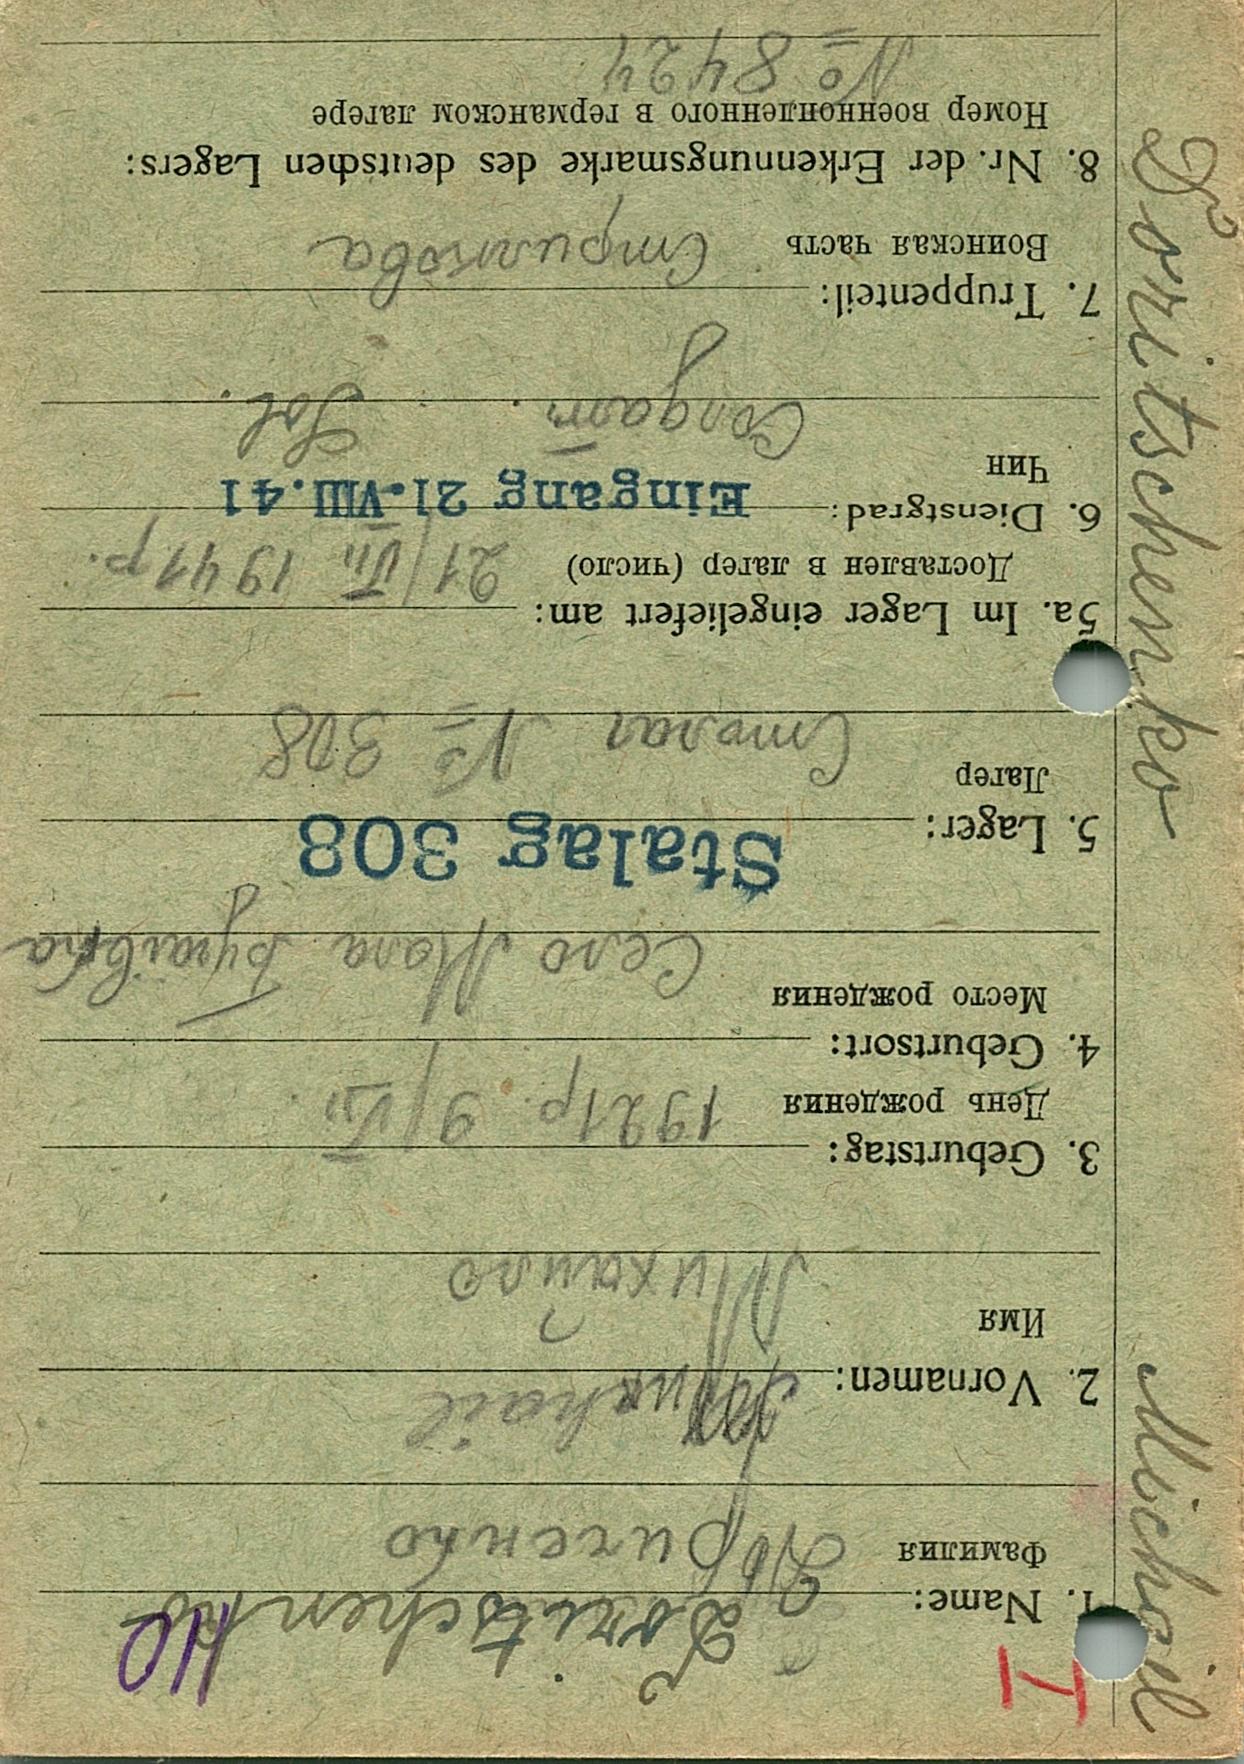 I
110
1. Name: Doritschenko
Фамилия Дориченко
2. Vornamen: Michail
Имя
Михайло
3. Geburtstag:
День рождения 1921 р. 9/VII
4. Geburtsort:
Место рождения
Село Мала
Stalag 308
5. Lager:
Лагер
Сталаг № 308
5a. Im Lager eingeliefert am:
Доставлен в лагер (число) 21/VII 1941 р.
6. Dienstgrad: Eingang 21.VIII.41
Чин
Солдат. Sol.
7. Truppenteil:
Воинская часть Стрилкова
8. Nr. der Erkennungsmarke des deutschen Lagers:
Номер военнопленного в германском лагере
№ 8424
Michail Doritschenko